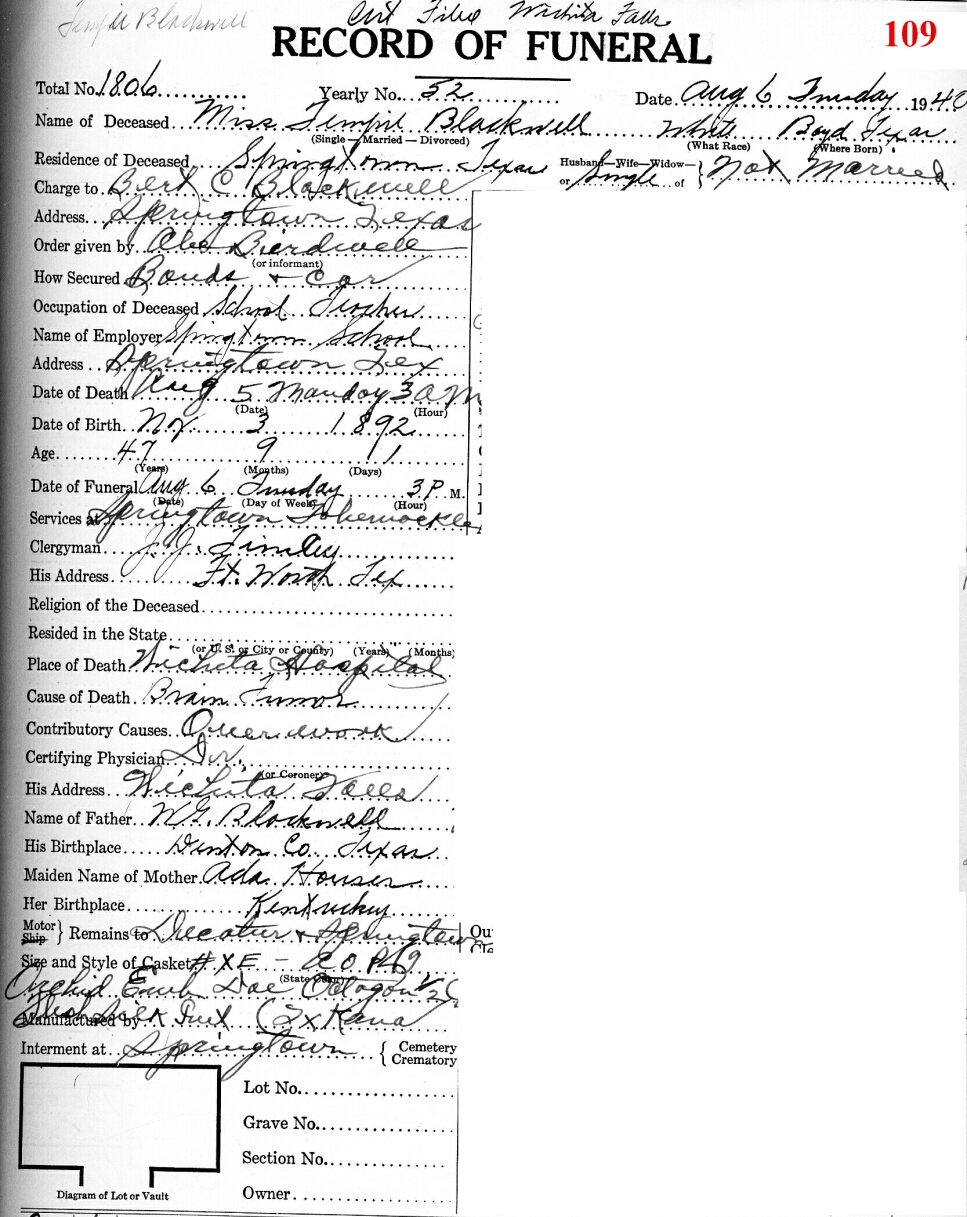 Temple Blackwell
Cert Filed Wichita Falls
109
RECORD OF FUNERAL
Total No. 1806 Yearly No. 52 Date Aug 6 Tuesday 1940
Name of Deceased Miss Temple Blackwell White Boyd Texas
(Single — Married — Divorced) (What Race) (Where Born)
Residence of Deceased Springtown Texas Husband—Wife—Widow— or Single of } Not Married
Charge to Bert C Blackwell
Address Springtown Texas
Order given by Abe Birdwell
(or informant)
How Secured Bonds + Car
Occupation of Deceased School Teacher
Name of Employer Springtown School
Address Springtown Tex
Date of Death Aug 5 Monday 3 A M
(Date) (Hour)
Date of Birth Nov 3 1892
Age 47 9 1
(Years) (Months) (Days)
Date of Funeral Aug 6 Tuesday 3 P. M.
(Date) (Day of Week) (Hour)
Services at Springtown Tabernackle
Clergyman J.J. Finley
His Address Ft. Worth Tex
Religion of the Deceased
Resided in the State
(or U. S. or City or County) (Years) (Months)
Place of Death Wichita Hospital
Cause of Death Brain Tumor
Contributory Causes Overwork
Certifying Physician Dr.
(or Coroner)
His Address Wichita Falls
Name of Father W.G. Blackwell
His Birthplace Denton Co. Texas
Maiden Name of Mother Ada Houser
Her Birthplace Kentucky
Motor Ship } Remains to Decatur + Springtown Ou
Size and Style of Casket # XE -
(State Color)
Orchid Octagon
Manufactured by
Interment at Springtown { Cemetery Crematory
Lot No.
Grave No.
Section No.
Owner
Diagram of Lot or Vault